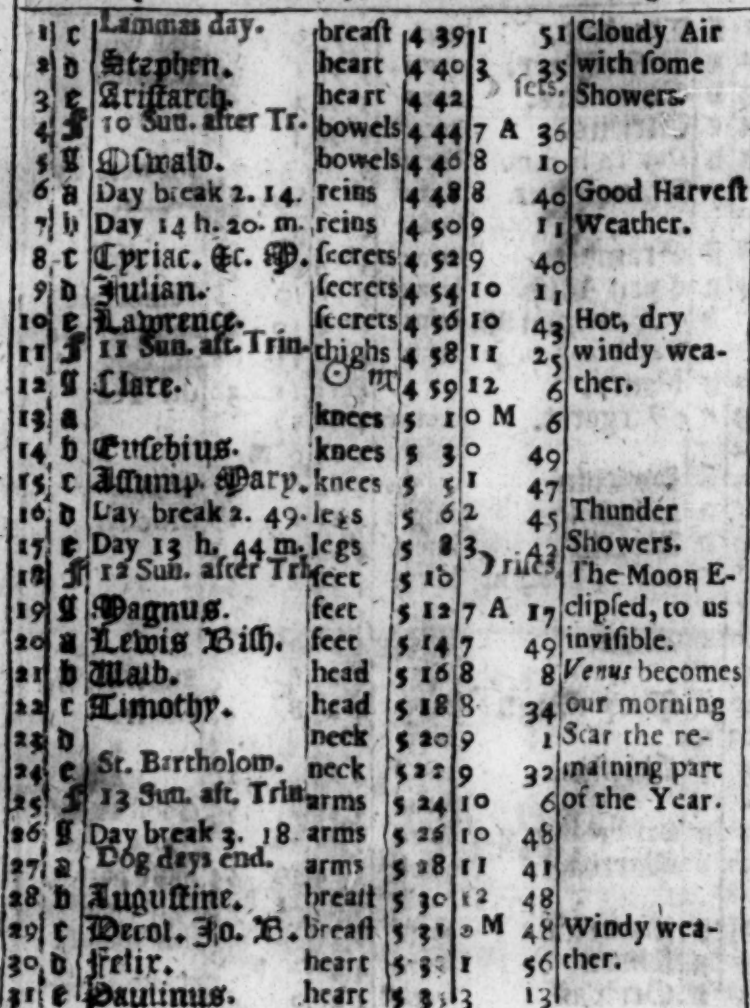 1 c Lammas day. breaſt 4 39 1 51 Cloudy Air
2 d Stephen. heart 4 40 3 35 with ſome
3 e Ariſtarch. heart 4 42 ☽ ſets. Showers.
4 f 10 Sun. after Tr. bowels 4 44 7 A 36
5 g Oſwald. bowels 4 46 8 10
6 a Day break 2. 14. reins 4 48 8 40 Good Harveſt
7 b Day 14 h. 20. m. reins 4 50 9 11 Weather.
8 c Cyriac. &c. M. ſecrets 4 52 9 40
9 d Julian. ſecrets 4 54 10 11
10 e Lawrence. ſecrets 4 56 10 43 Hot, dry
11 f 11 Sun. aft. Trin. thighs 4 58 11 25 windy wea-
12 g Clare. ☉ ♍ 4 59 12 6 ther.
13 a knees 5 1 0 M 6
14 b Euſebius. knees 5 3 0 49
15 c Aſſump. Mary. knees 5 5 1 47
16 d Day break 2. 49. legs 5 6 2 45 Thunder
17 e Day 13 h. 44 m. legs 5 8 3 43 Showers.
18 f 12 Sun. after Tri. feet 5 10 ☽ riſes. The Moon E-
19 g Magnus. feet 5 12 7 A 17 clipſed, to us
20 a Lewis Biſh. feet 5 14 7 49 inviſible.
21 b Walb. head 5 16 8 8 Venus becomes
22 c Timothy. head 5 18 8 34 our morning
23 d neck 5 20 9 1 Star the re-
24 e St. Bartholom. neck 5 22 9 32 maining part
25 f 13 Sun. aft. Trin. arms 5 24 10 6 of the Year.
26 g Day break 3. 18 arms 5 26 10 48
27 a Dog days end. arms 5 28 11 41
28 b Auguſtine. breaſt 5 30 12 48
29 c Decol. Jo. B. breaſt 5 31 0 M 48 Windy wea-
30 d Felix. heart 5 1 56 ther.
31 e Paulinus. heart 5 3 13